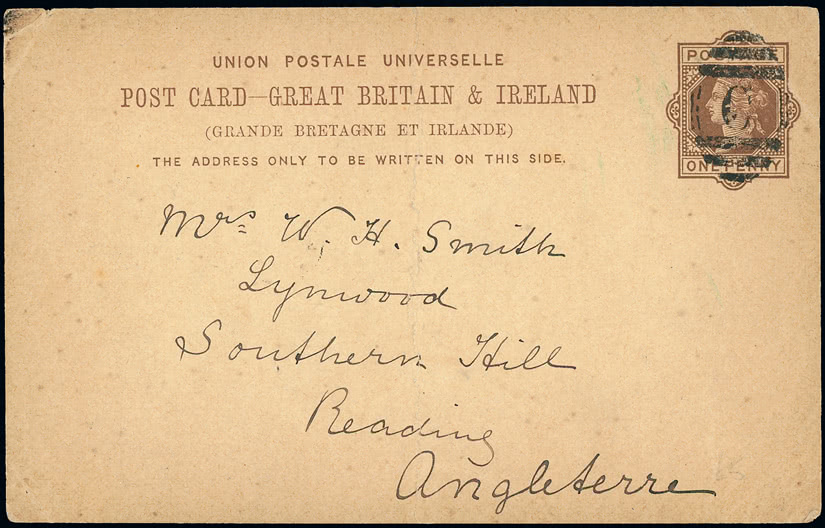 UNION POSTALE UNIVERSELLE
POST CARD—GREAT BRITAIN & IRELAND
(GRANDE BRETAGNE ET IRLANDE)
THE ADDRESS ONLY TO BE WRITTEN ON THIS SIDE.
POSTAGE
C
ONE PENNY
Mrs W. H. Smith
Lynwood
Southern Hill
Reading
Angleterre